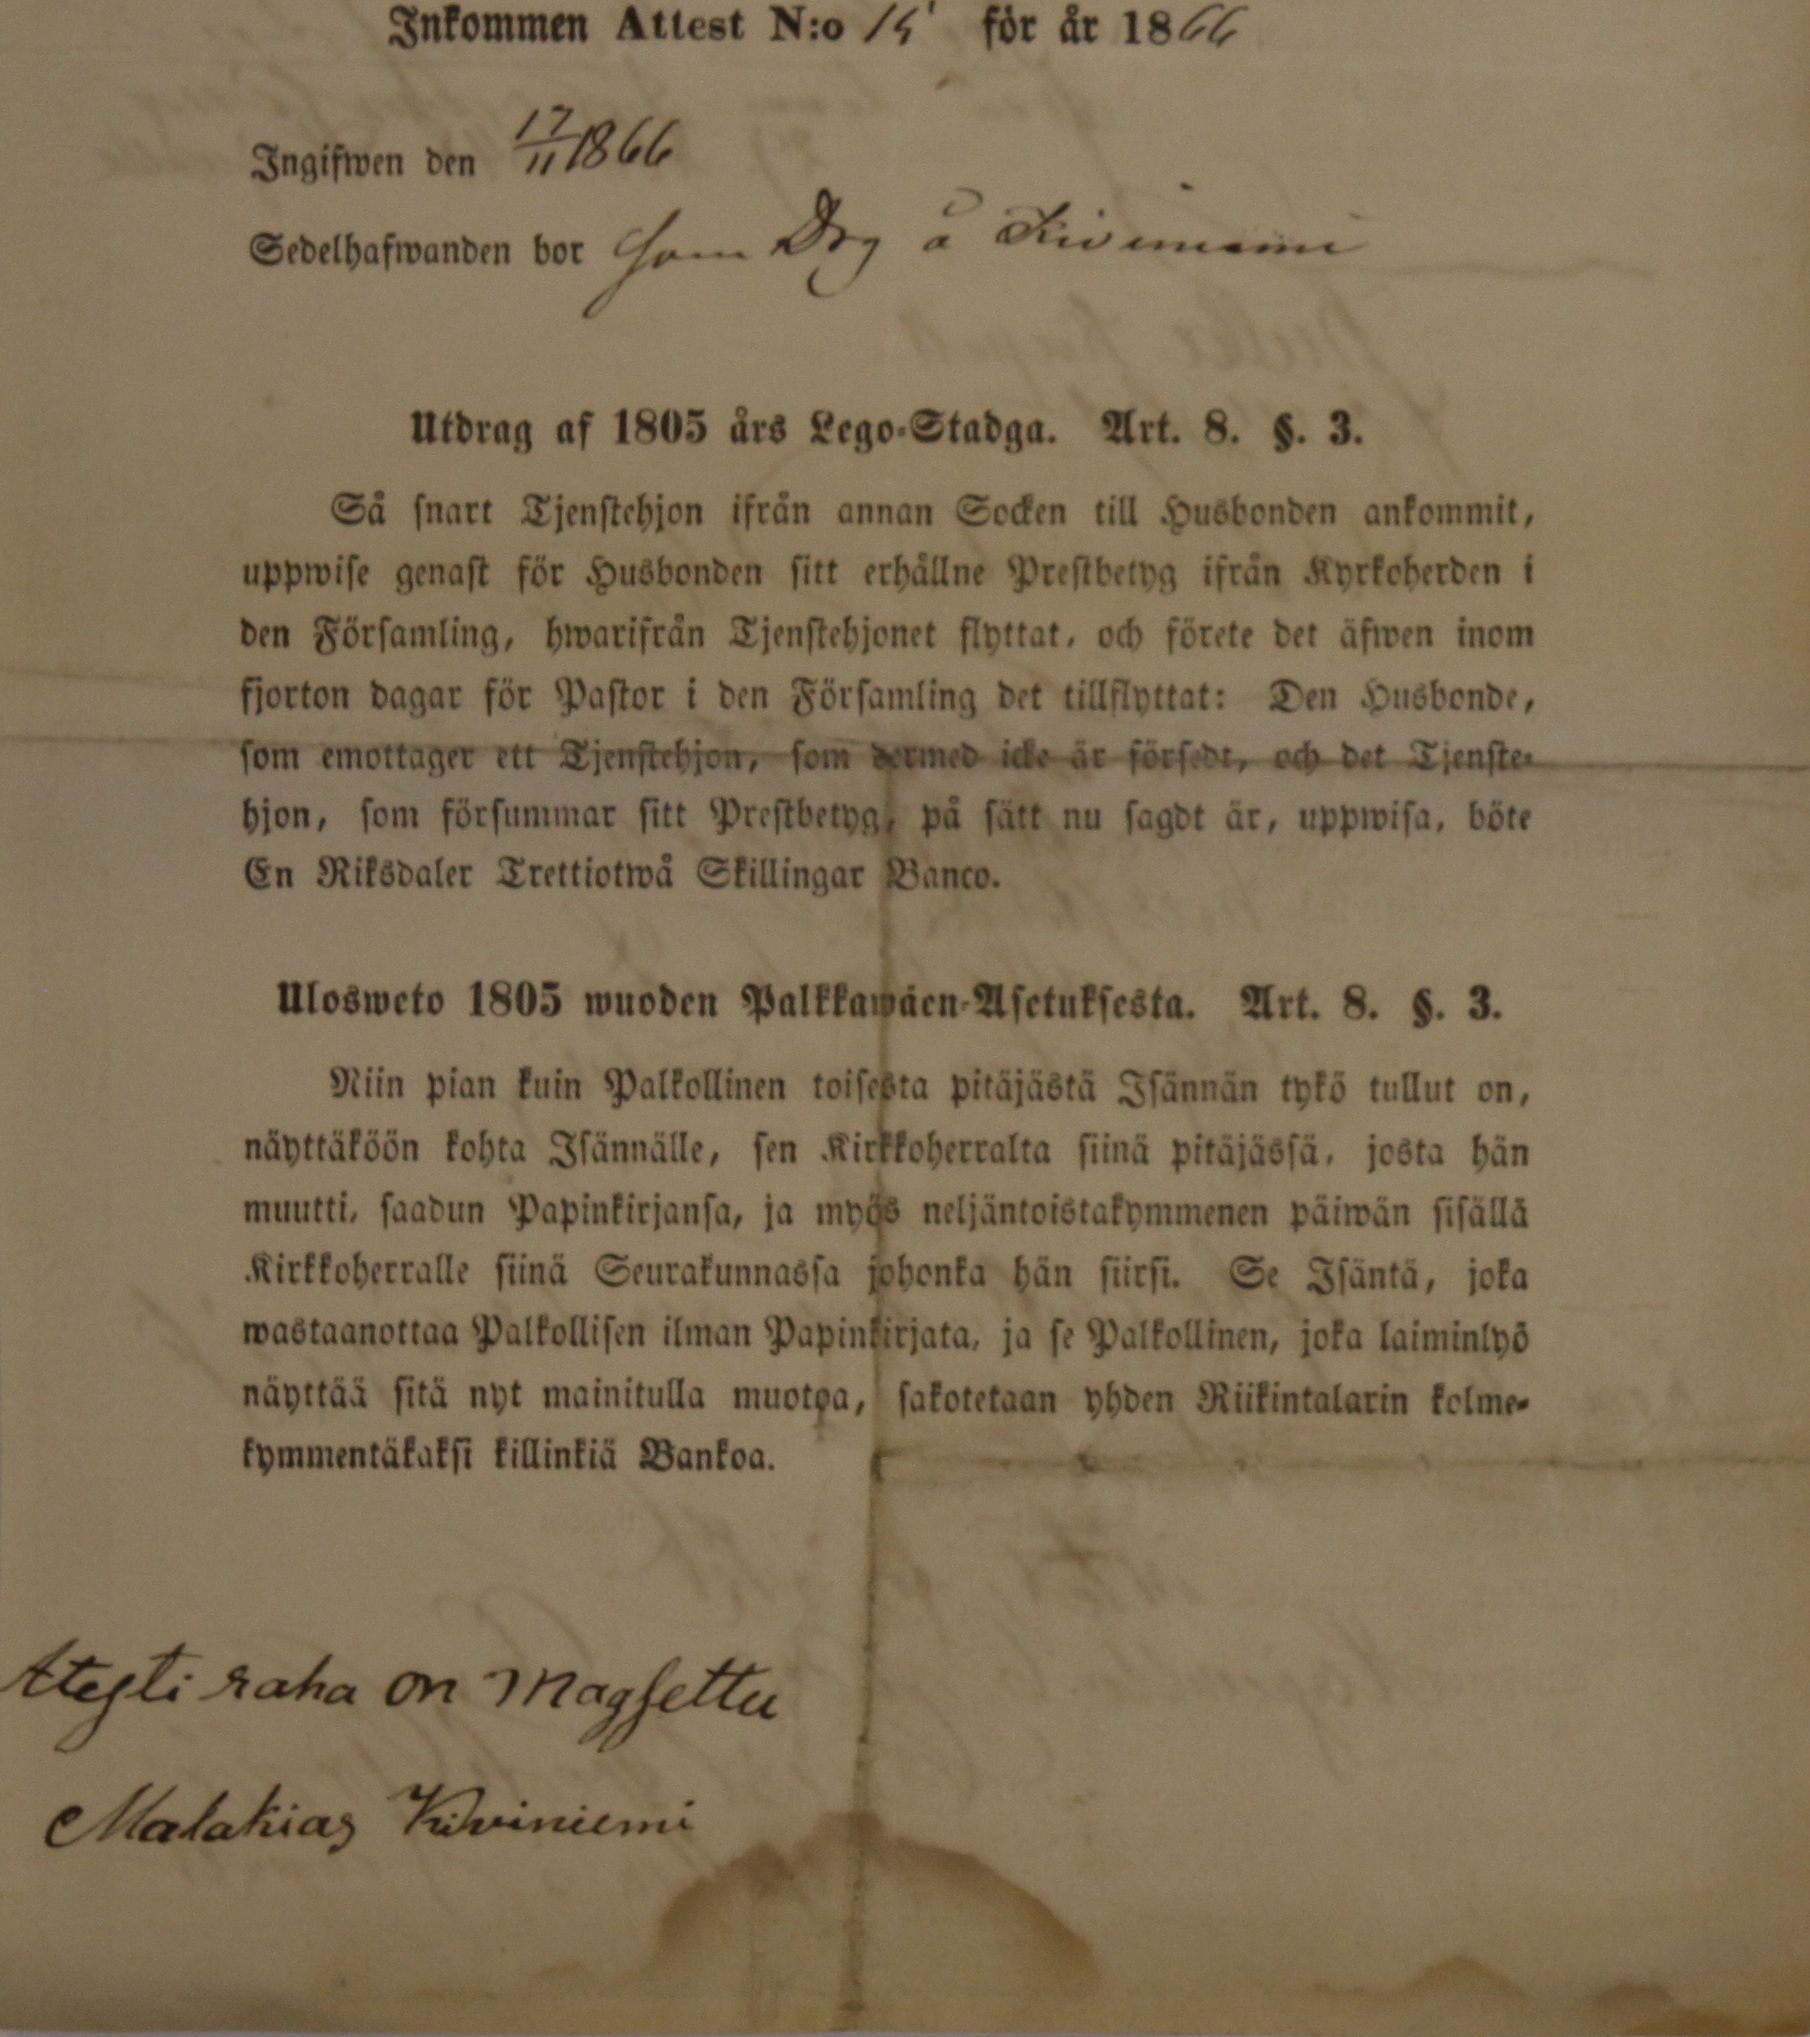 Inkommen Attest N:o 15 för år 1866
Ingifwen den 17/11 1866
Sedelhafwanden bor som Drg å Kiviniemi
Utdrag af 1805 års Lego-Stadga. Art. 8. §. 3.
Så snart Tjenstehjon ifrån annan Socken till Husbonden ankommit,
uppwise genast för Husbonden sitt erhållne Prestbetyg ifrån Kyrkoherden i
den Församling, hwarifrån Tjenstehjonet flyttat, och förete det äfwen inom
fjorton dagar för Pastor i den Församling det tillflyttat: Den Husbonde,
som emottager ett Tjenstehjon, som dermed icke är försedt, och det Tjenste-
hjon, som försummar sitt Prestbetyg, på sätt nu sagdt är, uppwisa, böte
En Riksdaler Trettiotwå Skillingar Banco.
Ulosweto 1805 wuoden Palkkawäen-Asetuksesta. Art. 8. §. 3.
Niin pian kuin Palkollinen toisesta pitäjästä Isännän tykö tullut on,
näyttäköön kohta Isännälle, sen Kirkkoherralta siinä pitäjässä, josta hän
muutti, saadun Papinkirjansa, ja myös neljäntoistakymmenen päiwän sisällä
Kirkkoherralle siinä Seurakunnassa johonka hän siirsi. Se Isäntä, joka
wastaanottaa Palkollisen ilman Papinkirjata, ja se Palkollinen, joka laiminlyö
näyttää sitä nyt mainitulla muotoa, sakotetaan yhden Riikintalarin kolme-
kymmentäkaksi killinkiä Bankoa.
Atesti raha on Magsettu
Malakias Kiviniemi